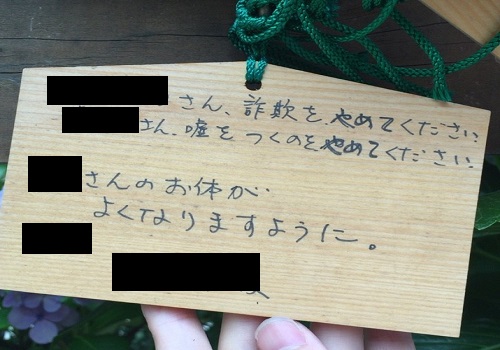 さん、詐欺を、やめてください
さん、嘘をつくのをやめてください
さんのお体が
よくなりますように。